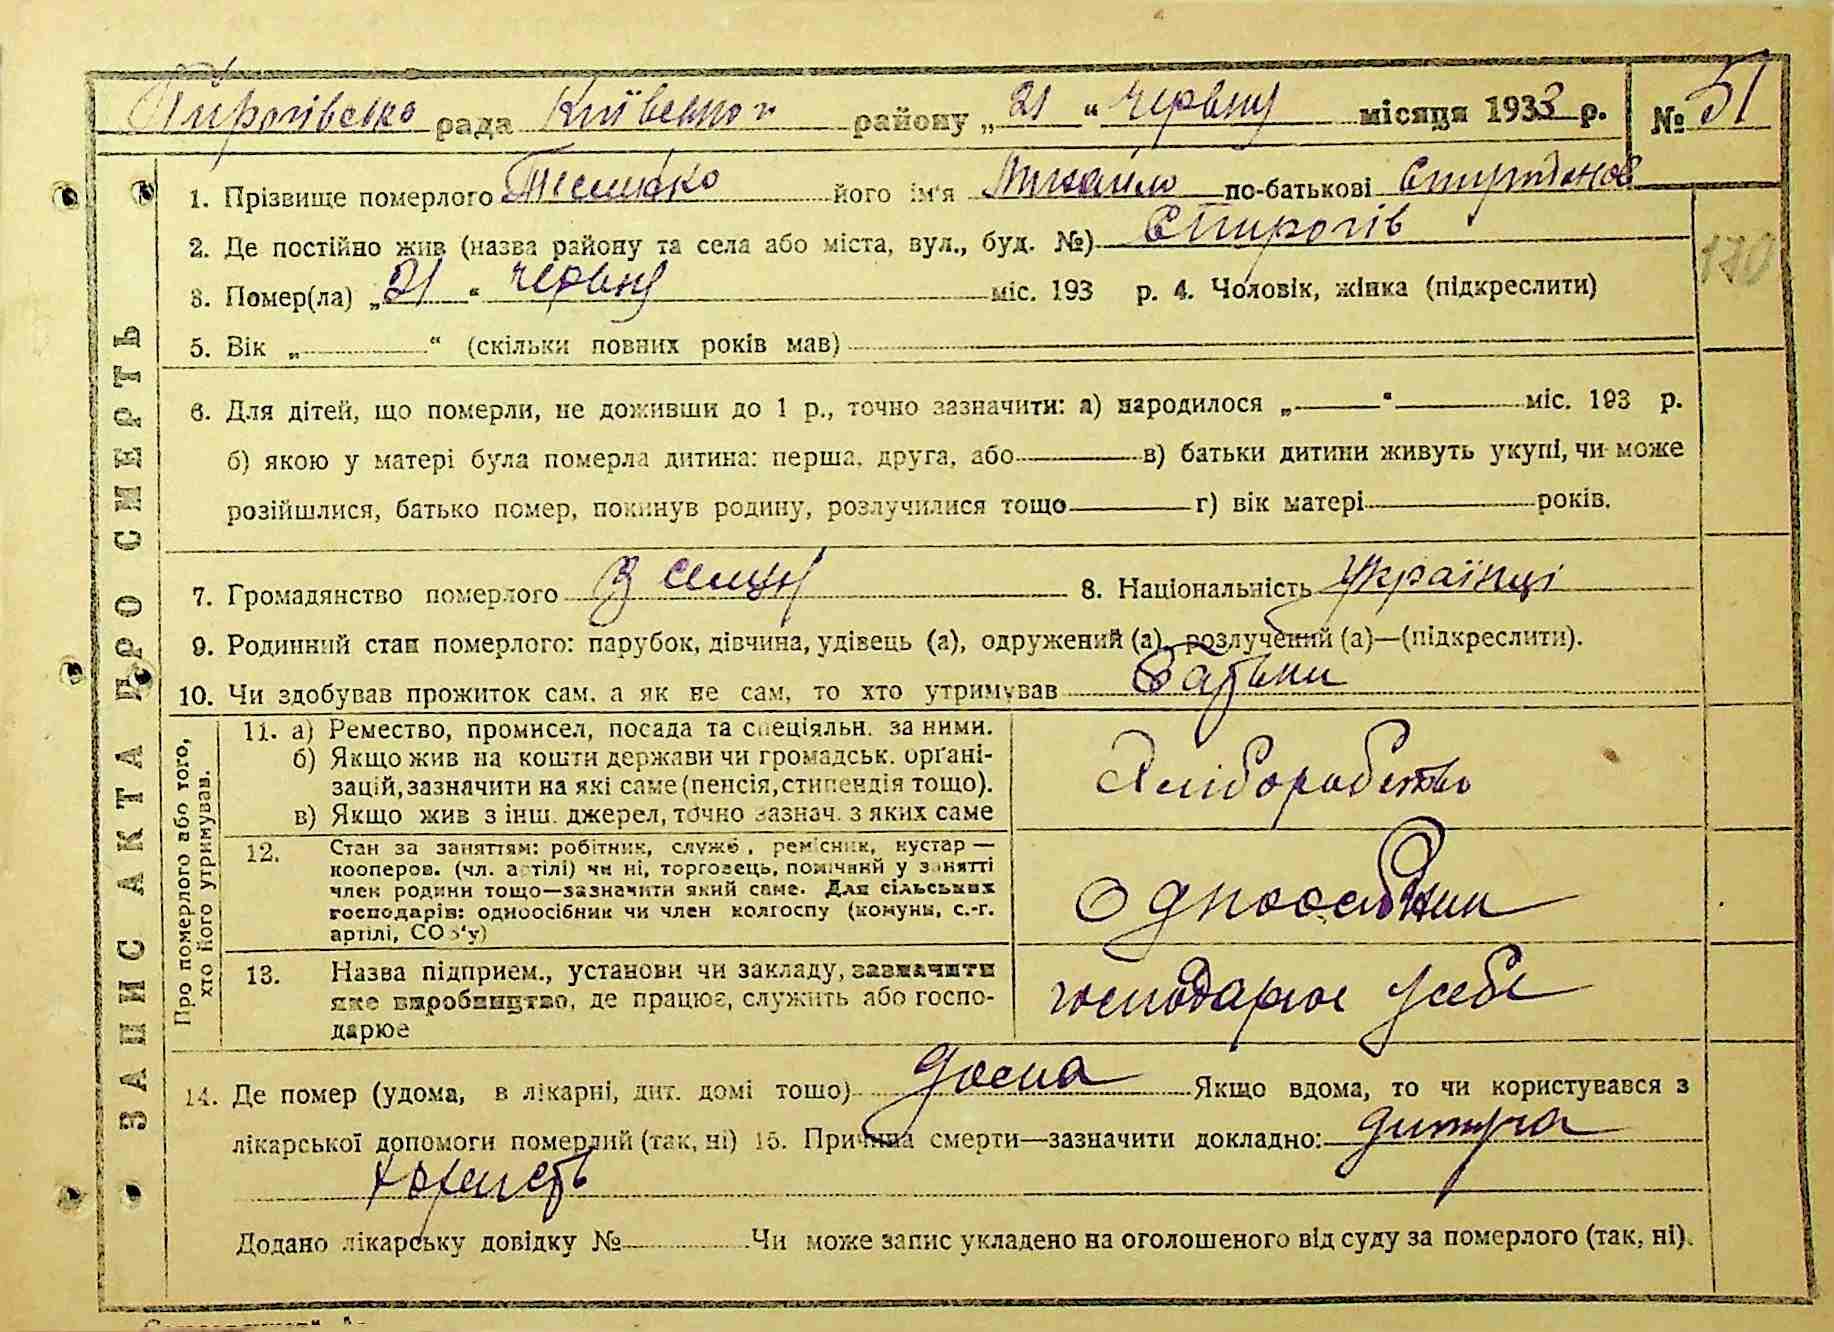 Пирогівська рада Київського району „21“ червня місяця 1933 р. № 51
1. Прізвище померлого його ім'я Михайло по-батькові
2. Де постійно жив (назва району та села або міста, вул., буд. №) с Пирогів
3. Помер(ла) „21“ червня міс. 193 р. 4. Чоловік, жінка (підкреслити)
170
5. Вік „ “ (скільки повних років мав)
6. Для дітей, що померли, не доживши до 1 р., точно зазначити: а) народилося „ “ міс. 193 р.
б) якою у матері була померла дитина: перша, друга, або в) батьки дитини живуть укупі, чи може
розійшлися, батько помер, покинув родину, розлучилися тощо г) вік матері років.
7. Громадянство померлого з селян 8. Національність Українці
9. Родинний стан померлого: парубок, дівчина, удівець (а), одружений (а), розлучений (а)—(підкреслити).
10. Чи здобував прожиток сам, а як не сам, то хто утримував батьки
Про померлого або того, хто його утримував.
11. а) Ремество, промисел, посада та спеціяльн. за ними.
б) Якщо жив на кошти держави чи громадськ. орґані-
зацій, зазначити на які саме (пенсія, стипендія тощо).
в) Якщо жив з інш. джерел, точно зазнач. з яких саме
Хліборобство
12. Стан за заняттям: робітник, служб., ремісник, кустар —
кооперов. (чл. артілі) чи ні, торговець, помічний у занятті
член родини тощо—зазначити який саме. Для сільських
господарів: одноосібник чи член колгоспу (комуни, с.-г.
артілі, СОЗ'у)
Одноосібник
13. Назва підприєм., установи чи закладу, зазначити
яке виробництво, де працює, служить або госпо-
дарює
господарює у себе
14. Де помер (удома, в лікарні, дит. домі тощо) дома Якщо вдома, то чи користувався з
лікарської допомоги померлий (так, ні) 15. Причина смерти—зазначити докладно:
Додано лікарську довідку № Чи може запис укладено на оголошеного від суду за померлого (так, ні).
ЗАПИС АКТА ПРО СМЕРТЬ